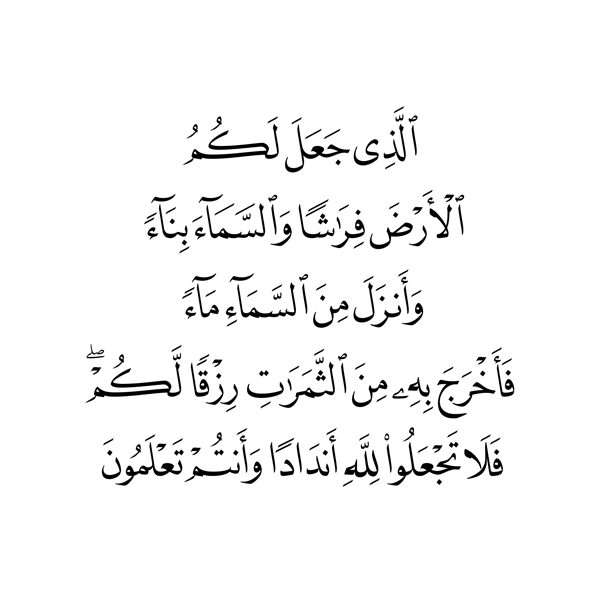 ٱلَّذِى جَعَلَ لَكُمُ
ٱلْأَرْضَ فِرَٰشًا وَٱلسَّمَآءَ بِنَآءً
وَأَنزَلَ مِنَ ٱلسَّمَآءِ مَآءً
فَأَخْرَجَ بِهِۦ مِنَ ٱلثَّمَرَٰتِ رِزْقًا لَّكُمْ ۖ
فَلَا تَجْعَلُوا۟ لِلَّهِ أَندَادًا وَأَنتُمْ تَعْلَمُونَ